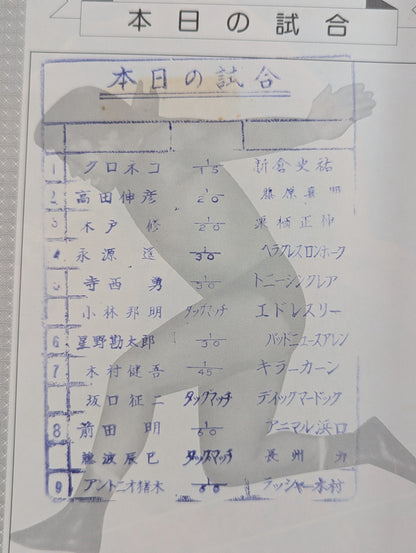 本日の試合
本日の試合
1 クロネコ 1/15 新倉史祐
2 高田伸彦 1/20 藤原喜明
3 木戸修 1/20 栗栖正伸
4 永源遥 1/30 ヘラクレスロンホーク
5 寺西勇 1/30 トニーシンクレア
小林邦明 タッグマッチ エドレスリー
6 星野勘太郎 1/30 バッドニュースアレン
7 木村健吾 1/45 キラーカーン
坂口征二 タッグマッチ ディックマードック
8 前田明 1/60 アニマル浜口
難波辰巳 タッグマッチ 長州力
9 アントニオ猪木 1/60 ラッシャー木村